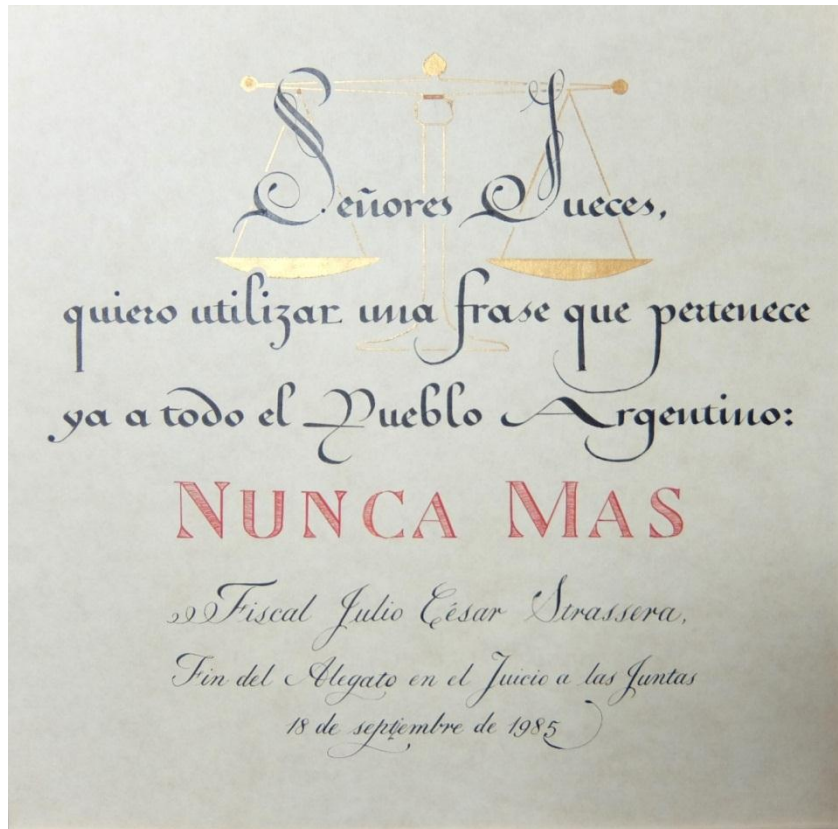 Señores Jueces,
quiero utilizar una frase que pertenece
ya a todo el Pueblo Argentino:
NUNCA MAS
Fiscal Julio César Strassera,
Fin del Alegato en el Juicio a las Juntas
18 de septiembre de 1985